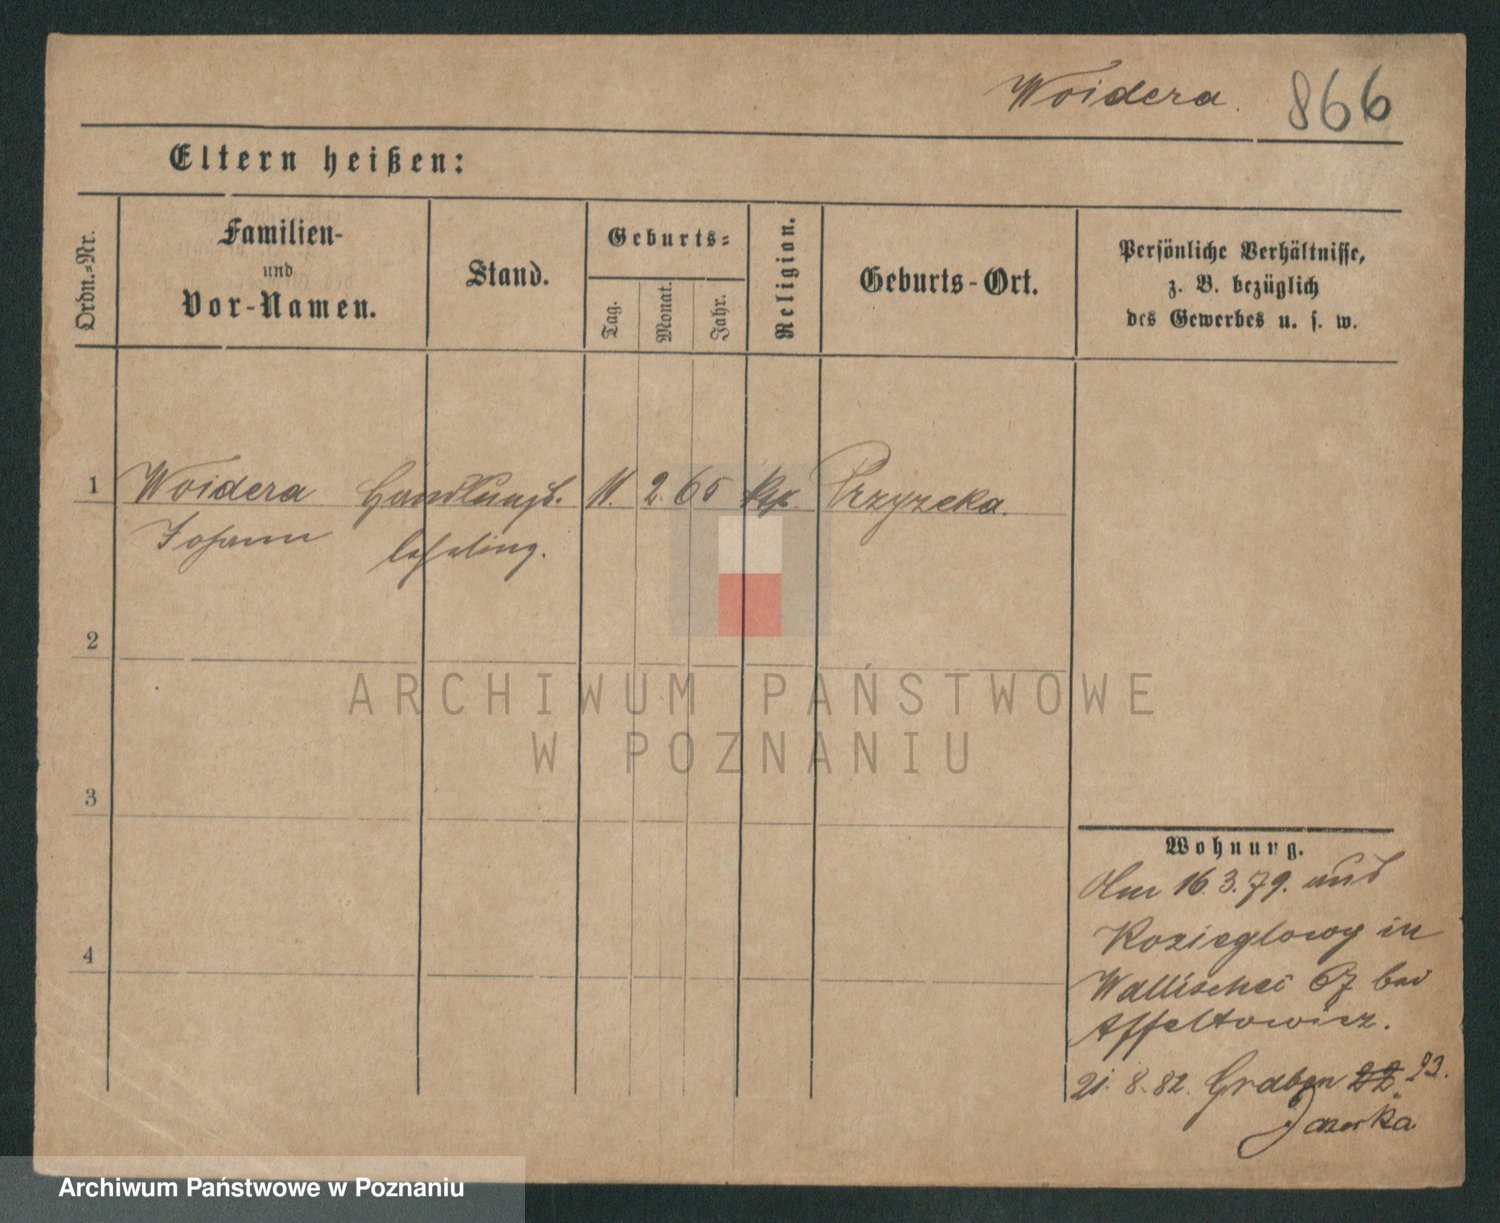 Woidera. 866
Eltern heißen:
Ordn.=Nr.
Familien-
und
Vor-Namen.
Stand.
Geburts=
Tag.
Monat.
Jahr.
Religion.
Geburts-Ort.
Persönliche Verhältnisse,
z. B. bezüglich
des Gewerbes u. s. w.
1 Woidera Handlungs. 11. 2. 65 kth. Przyzeka.
Johann lehrling.
2
3
4
ARCHIWUM PAŃSTWOWE
W POZNANIU
Wohnung.
16.3.79. aus
Kozieglowy in
Wallischei 67 bei
Affeltowicz.
21. 8. 82. Graben 22 23.
Archiwum Państwowe w Poznaniu